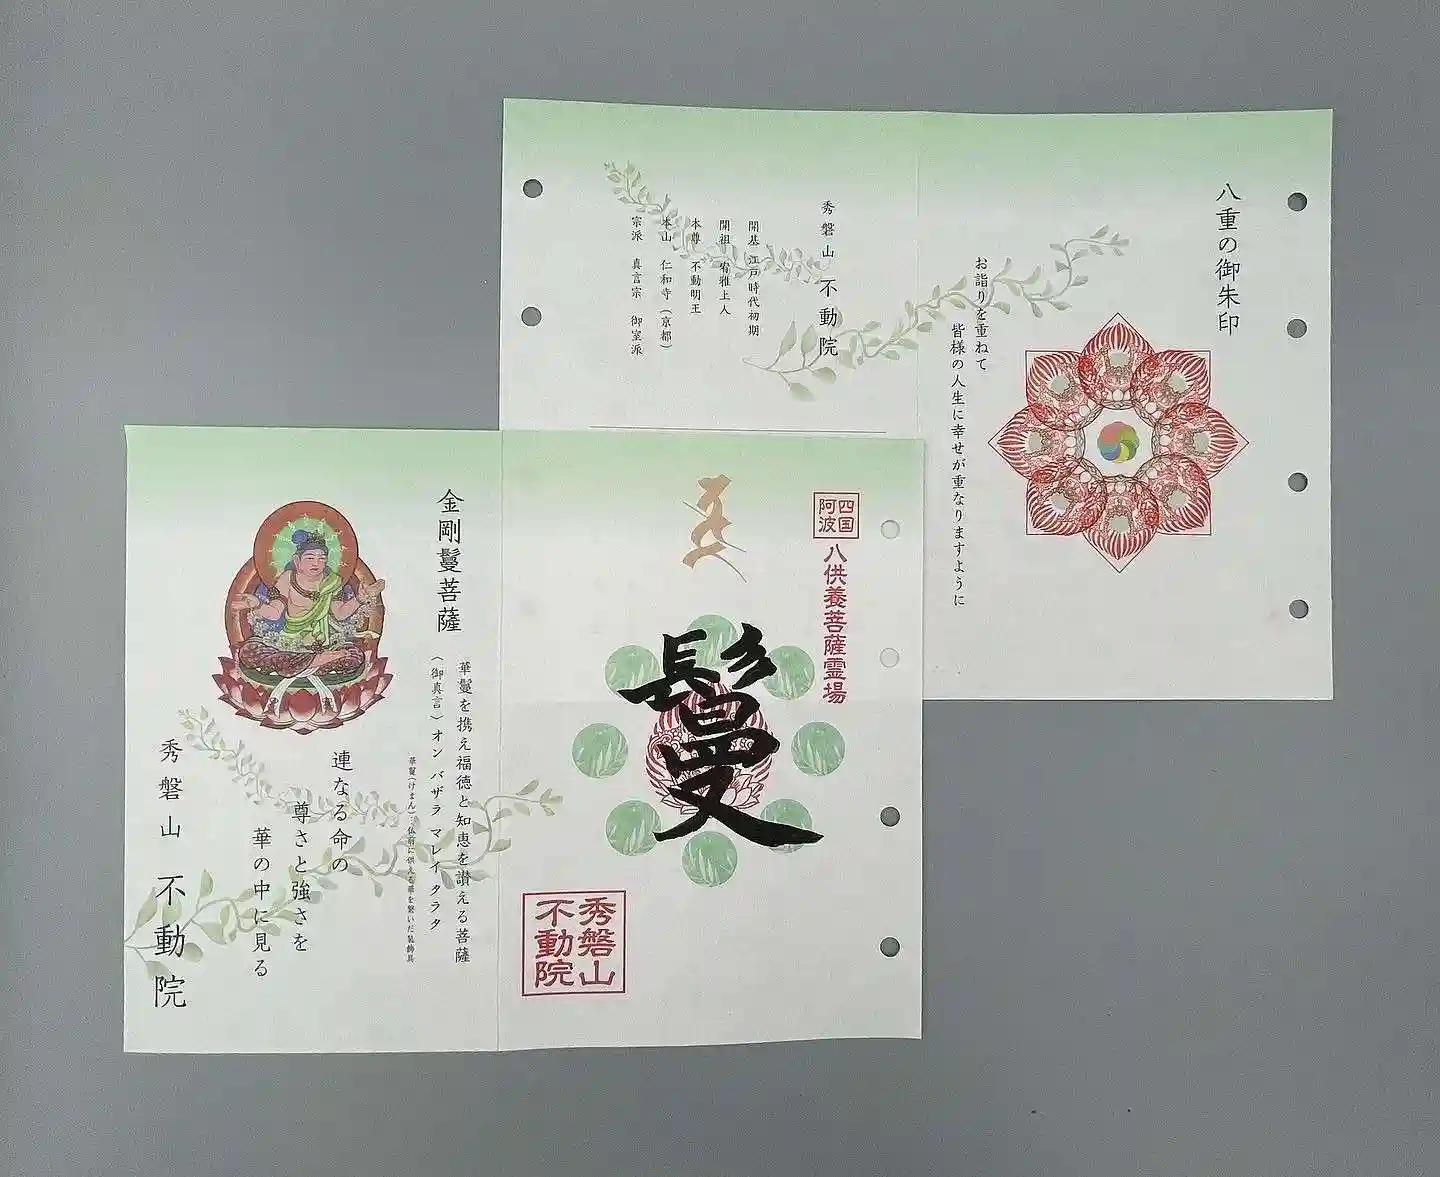 八重の御朱印
お詣りを重ねて
皆様の人生に幸せが重なりますように
秀磐山 不動院
開基 江戸時代初期
開祖 宥雅上人
本尊 不動明王
本山 仁和寺（京都）
宗派 真言宗 御室派
四国
阿波
八供養菩薩霊場
鬘
秀磐山
不動院
金剛鬘菩薩
華鬘を携え福徳と知恵を讃える菩薩
（御真言）オン バザラ マレイ タラタ
華鬘（けまん）：仏前に供える華を繋いだ装飾具
連なる命の
尊さと強さを
華の中に見る
秀磐山 不動院